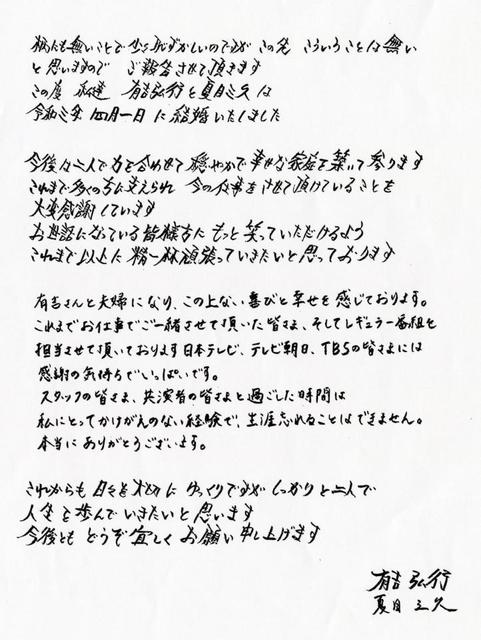 柄にも無いことで少々恥ずかしいのですが この先 こういうことは無い
と思いますので ご報告させて頂きます
この度 私達 有吉弘行と夏目三久は
令和三年 四月一日 に結婚いたしました
今後は二人で力を合わせて 穏やかで幸せな家庭を築いて参ります
これまで多くの方に支えられ 今の仕事をさせて頂けていることを
大変感謝しています
お世話になっている皆様方に もっと笑っていただけるよう
これまで以上に精一杯頑張っていきたいと思っております
有吉さんと夫婦になり、この上ない喜びと幸せを感じております。
これまでお仕事でご一緒させて頂いた皆さま、そしてレギュラー番組を
担当させて頂いております日本テレビ、テレビ朝日、TBSの皆さまには
感謝の気持ちでいっぱいです。
スタッフの皆さま、共演者の皆さまと過ごした時間は
私にとってかけがえのない経験で、生涯忘れることはできません。
本当にありがとうございます。
これからも 日々を大切に ゆっくりですが しっかりと二人で
人生を歩んでいきたいと思います
今後とも どうぞ宜しく お願い申し上げます
有吉 弘行
夏目 三久